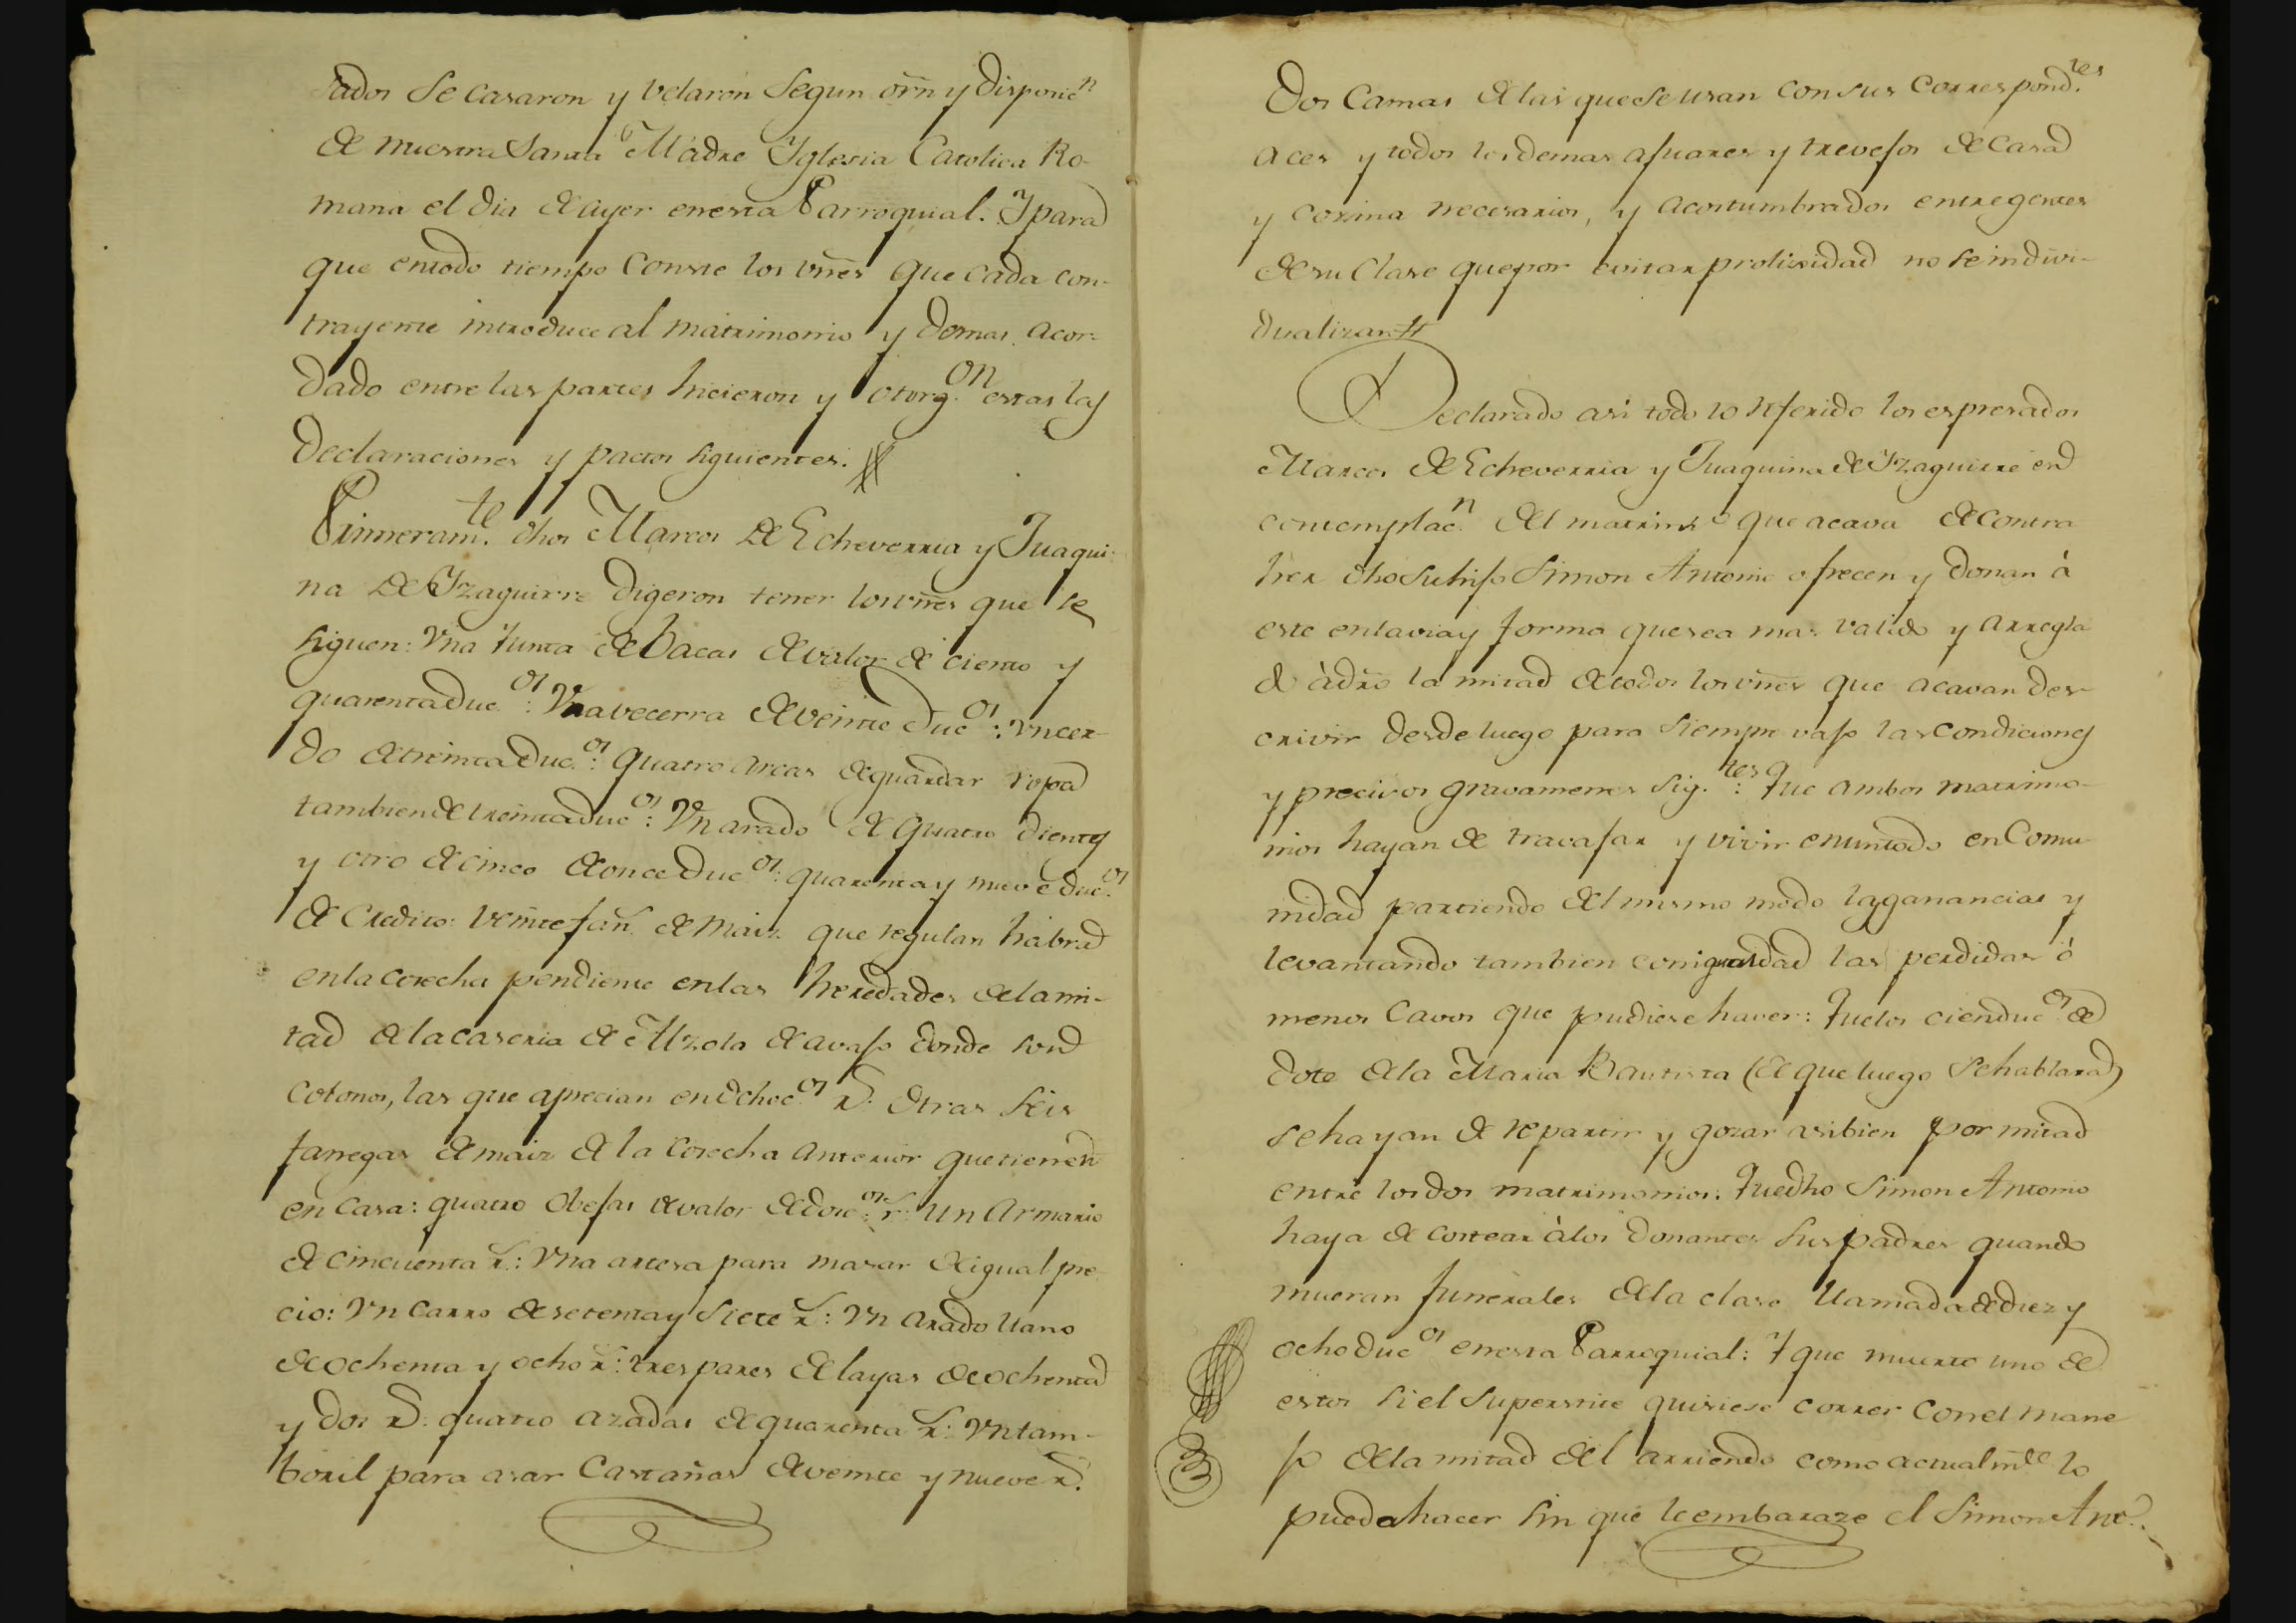 tados se casaron y velaron segun orn̄ y disposic.n
de nuestra Santa Madre Yglesia Catolica Ro-
mana el dia de ayer en esta Parroquial. Y para
que en todo tiempo conste los vn̄es que cada con-
trayente introduce al matrimonio y demas acor-
dado entre las partes hicieron y otorg.on estas las
declaraciones y pactos siguientes.
Primeram.te dhos Marcos de Echeverria y Juaqui-
na de Yzaguirre digeron tener los vn̄es que se
siguen: Vna Junta de bacas de valor de ciento y
quarenta duc.os: Vna vecerra de veinte duc.os: vn cer-
do de treinta duc.os: quatro Arcas de guardar ropa
tambien de treinta duc.os: Vn arado de quatro dientes
y otro de cinco de once duc.os: quarenta y nueve duc.os
de credito: veinte fan.s de Maiz que regulan habra
en la cosecha pendiente en las heredades de la mi-
tad de la caseria de Alzola de avajo donde son
Colonos, las que aprecian en ochoc.os r.s Otras seis
fanegas de maiz de la cosecha anterior que tienen
en casa: quatro Obejas de valor de doc.os r.s Un Armario
de cincuenta r.s: Vna artesa para masar de igual pre
cio: Vn carro de setenta y siete r.s: Vn Arado llano
de ochenta y ocho r.s: tres pares de layas de ochenta
y dos r.s: quatro azadas de quarenta r.s: Vn tam-
boril para asar Castañas de veinte y nueve r.s
Dos Camas de las que se usan con sus correspond.tes
aces y todos los demas ajuares y trevejos de casa
y cozina necesarios, y acostumbrados entre gentes
de su clase que por evitar prolixidad no se indivi-
dualizan.
Declarado asi todo lo referido los espresados
Marcos de Echeverria y Juaquina de Yzaguirre en
contemplac.n del matrim.o que acava de contra
her dho su hijo Simon Antonio ofrecen y donan á
este en la via y forma que sea mas valido y arregla
do à dr̄o la mitad de todos los vn̄es que acavan des-
crivir desde luego para siempre vajo las condiciones
y precisos gravamenes sig.tes: Que ambos matrimo-
nios hayan de travajar y vivir en un todo en Comu
nidad partiendo del mismo modo las ganancias y
levantando tambien con igualdad las perdidas ó
menos cavos que pudiese haver: Que los cien duc.os de
dote de la Maria Bautista (de que luego se hablara)
se hayan de repartir y gozar asibien por mitad
entre los dos matrimonios: Que dho Simon Antonio
haya de costear à los donantes sus padres quando
mueran funerales de la clase llamada de diez y
ocho duc.os en esta Parroquial: Y que muerto uno de
estos si el superstite quisiese correr con el mane
jo de la mitad del arriendo como actualm.te lo
pueda hacer sin que le embaraze el Simon Ant.o